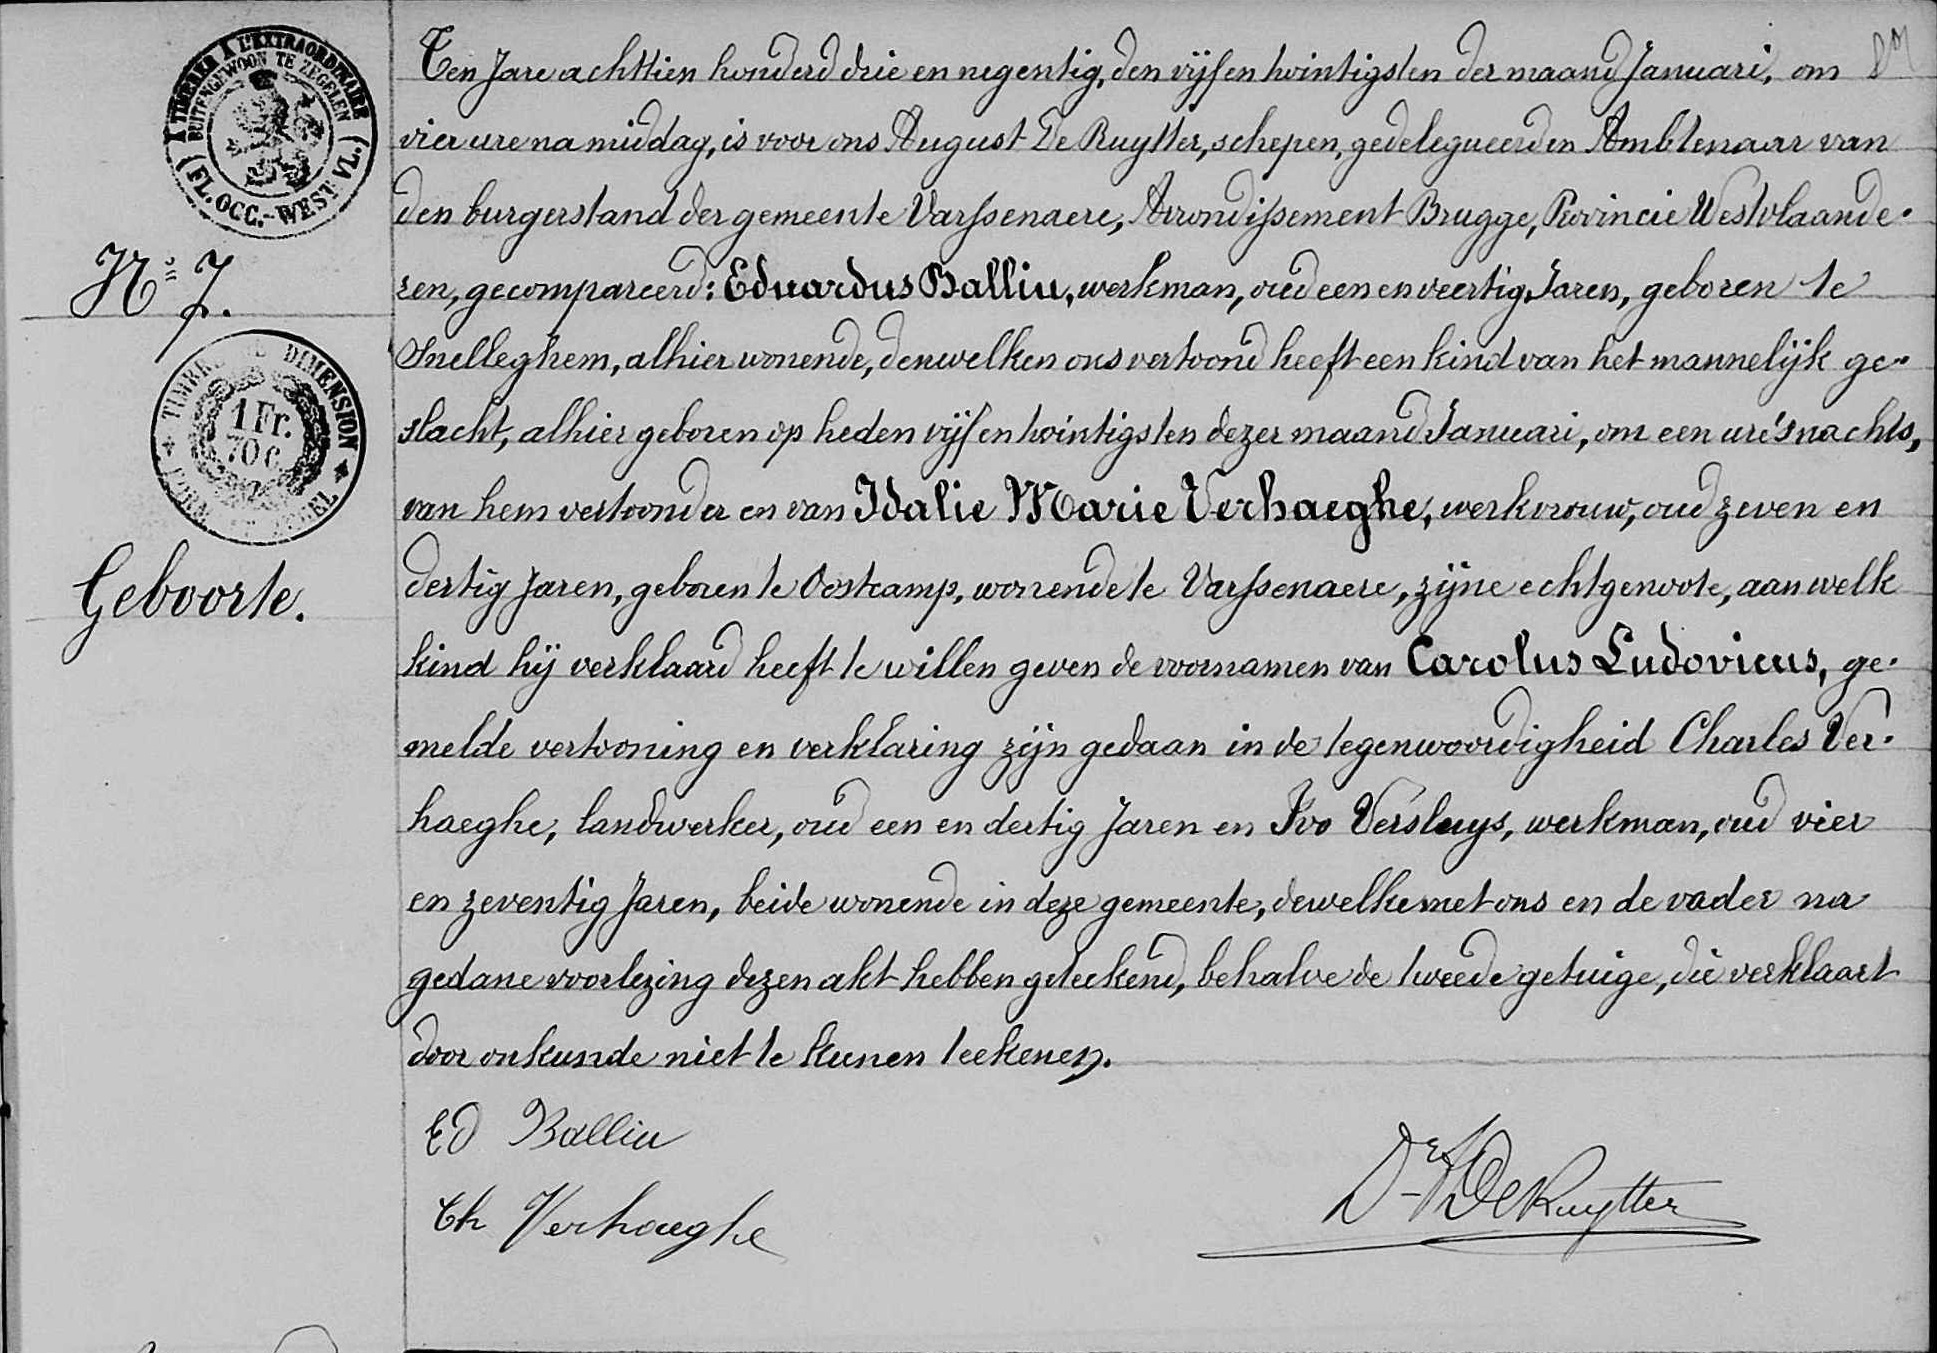 A TIMBRER A L'EXTRAORDINAIRE
BUITENGEWOON TE ZEGELEN
(FL. OCC.-WEST VL.)
Nº 7.
TIMBRE DE DIMENSION
1 Fr.
70 C
Geboorte.
Ten Jare achttien honderd drie en negentig, den vijf en twintigsten der maand Januari, om
vier ure namiddag, is voor ons August De Ruytter, schepen, gedelegueerden Ambtenaar van
den burgerstand der gemeente Varssenaere, Arrondissement Brugge, Provincie Westvlaande-
ren, gecompareerd: Eduardus Balliu, werkman, oud een en veertig Jaren, geboren te
Snelleghem, alhier wonende, denwelken ons vertoond heeft een kind van het mannelijk ge-
slacht, alhier geboren op heden vijf en twintigsten dezer maand Januari, om een ure 's nachts,
van hem vertoonder en van Idalie Marie Verhaeghe, werkvrouw, oud zeven en
dertig Jaren, geboren te Oostcamp, wonende te Varssenaere, zijne echtgenoote, aan welk
kind hij verklaard heeft te willen geven de voornamen van Carolus Ludovicus, ge-
melde vertooning en verklaring zijn gedaan in de tegenwoordigheid Charles Ver-
haeghe, landwerker, oud een en dertig Jaren en Ivo Versluys, werkman, oud vier
en zeventig Jaren, beide wonende in deze gemeente, dewelke met ons en de vader na
gedane voorlezing dezen akt hebben geteekend, behalve de tweede getuige, die verklaart
door onkunde niet te kunen teekenen.
Ed Balliu
Ch Verhaeghe
De Ruytter